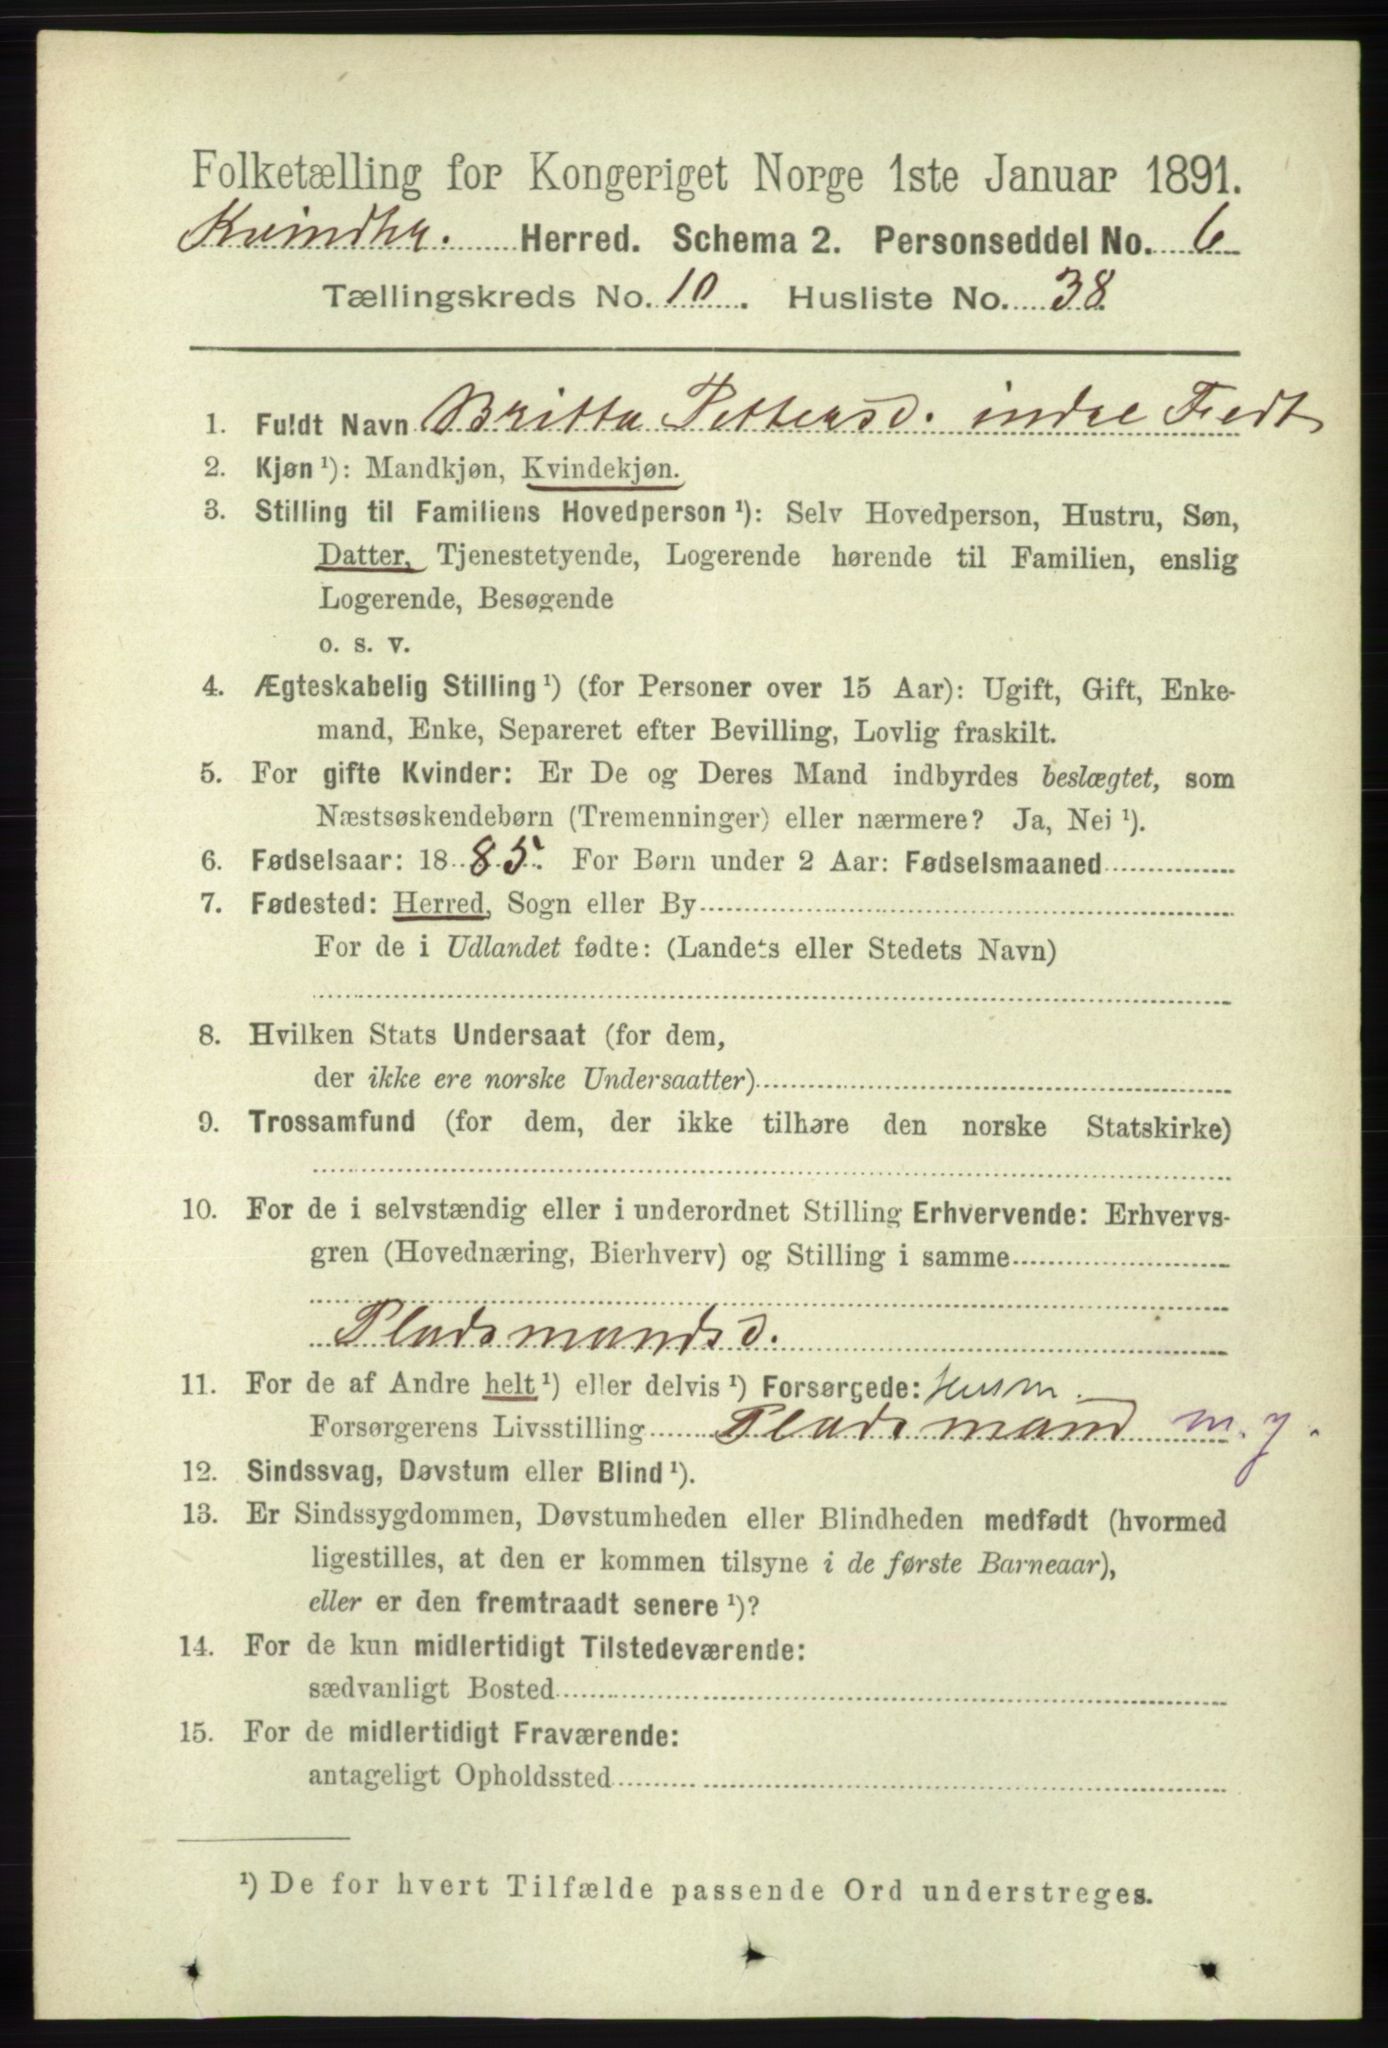 Folketælling for Kongeriget Norge 1ste Januar 1891.
Kvindhr. Herred. Schema 2. Personseddel No. 6
Tællingskreds No. 10. Husliste No. 38
1. Fuldt Navn Britta Pettersd. indre Fedt
2. Kjøn ¹): Mandkjøn, Kvindekjøn.
3. Stilling til Familiens Hovedperson ¹): Selv Hovedperson, Hustru, Søn,
Datter, Tjenestetyende, Logerende hørende til Familien, enslig
Logerende, Besøgende
o. s. v.
4. Ægteskabelig Stilling ¹) (for Personer over 15 Aar): Ugift, Gift, Enke-
mand, Enke, Separeret efter Bevilling, Lovlig fraskilt.
5. For gifte Kvinder: Er De og Deres Mand indbyrdes beslægtet, som
Næstsøskendebørn (Tremenninger) eller nærmere? Ja, Nei ¹).
6. Fødselsaar: 1885. For Børn under 2 Aar: Fødselsmaaned
7. Fødested: Herred, Sogn eller By
For de i Udlandet fødte: (Landets eller Stedets Navn)
8. Hvilken Stats Undersaat (for dem,
der ikke ere norske Undersaatter)
9. Trossamfund (for dem, der ikke tilhøre den norske Statskirke)
10. For de i selvstændig eller i underordnet Stilling Erhvervende: Erhvervs-
gren (Hovednæring, Bierhverv) og Stilling i samme
Pladsmandsd.
11. For de af Andre helt ¹) eller delvis ¹) Forsørgede: Husm.
Forsørgerens Livsstilling Pladsmand m. j.
12. Sindssvag, Døvstum eller Blind ¹).
13. Er Sindssygdommen, Døvstumheden eller Blindheden medfødt (hvormed
ligestilles, at den er kommen tilsyne i de første Barneaar),
eller er den fremtraadt senere ¹)?
14. For de kun midlertidigt Tilstedeværende:
sædvanligt Bosted
15. For de midlertidigt Fraværende:
antageligt Opholdssted
¹) De for hvert Tilfælde passende Ord understreges.